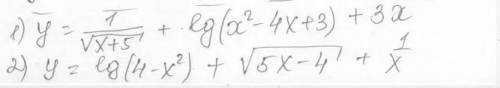 1) y = 1/√(x+5) + lg(x²-4x+3) + 3x
2) y = lg(4-x²) + √(5x-4) + 1/x